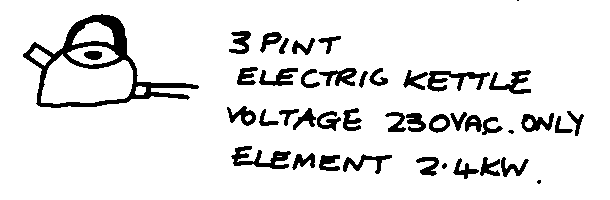 3 PINT
ELECTRIC KETTLE
VOLTAGE 230VAC. ONLY
ELEMENT 2.4KW.